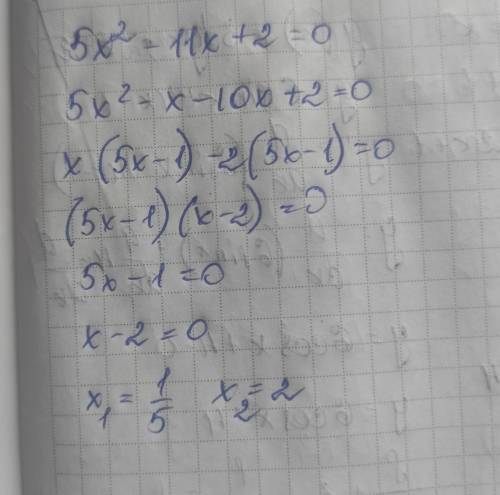 5x² - 11x + 2 = 0
5x² - x - 10x + 2 = 0
x (5x - 1) - 2 (5x - 1) = 0
(5x - 1) (x - 2) = 0
5x - 1 = 0
x - 2 = 0
x₁ = 1/5 x₂ = 2